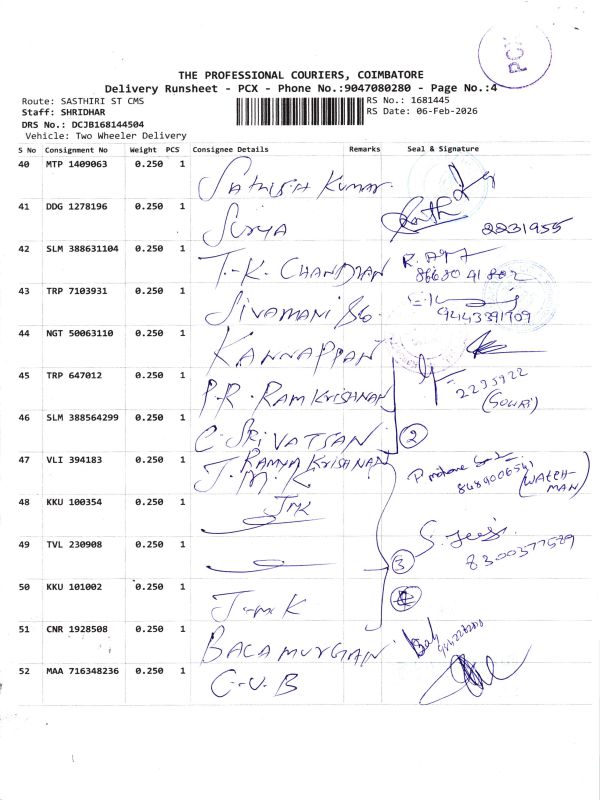 PCX
THE PROFESSIONAL COURIERS, COIMBATORE
Delivery Runsheet - PCX - Phone No.:9047080280 - Page No.:4
Route: SASTHIRI ST CMS
RS No.: 1681445
Staff: SHRIDHAR
RS Date: 06-Feb-2026
DRS No.: DCJB168144504
Vehicle: Two Wheeler Delivery
S No Consignment No Weight PCS Consignee Details Remarks Seal & Signature
40 MTP 1409063 0.250 1 Sathish Kumar.
41 DDG 1278196 0.250 1 Surya 2231955
42 SLM 388631104 0.250 1 T.K. CHANDRAN
43 TRP 7103931 0.250 1 Sivamani 9443391709
44 NGT 50063110 0.250 1 KANNAPPAN
45 TRP 647012 0.250 1 P.R. RAMKRISHNAN 2233922
(GOWRI)
46 SLM 388564299 0.250 1 C. SRIVATSAN 2
RAMYA KRISHNAN
47 VLI 394183 0.250 1 J.M.K 8489006541 (WATCH-
MAN)
48 KKU 100354 0.250 1 JMK
49 TVL 230908 0.250 1 3 8300377589
50 KKU 101002 0.250 1 J.M.K
51 CNR 1928508 0.250 1 BALAMURGAN
52 MAA 716348236 0.250 1 C.U.B